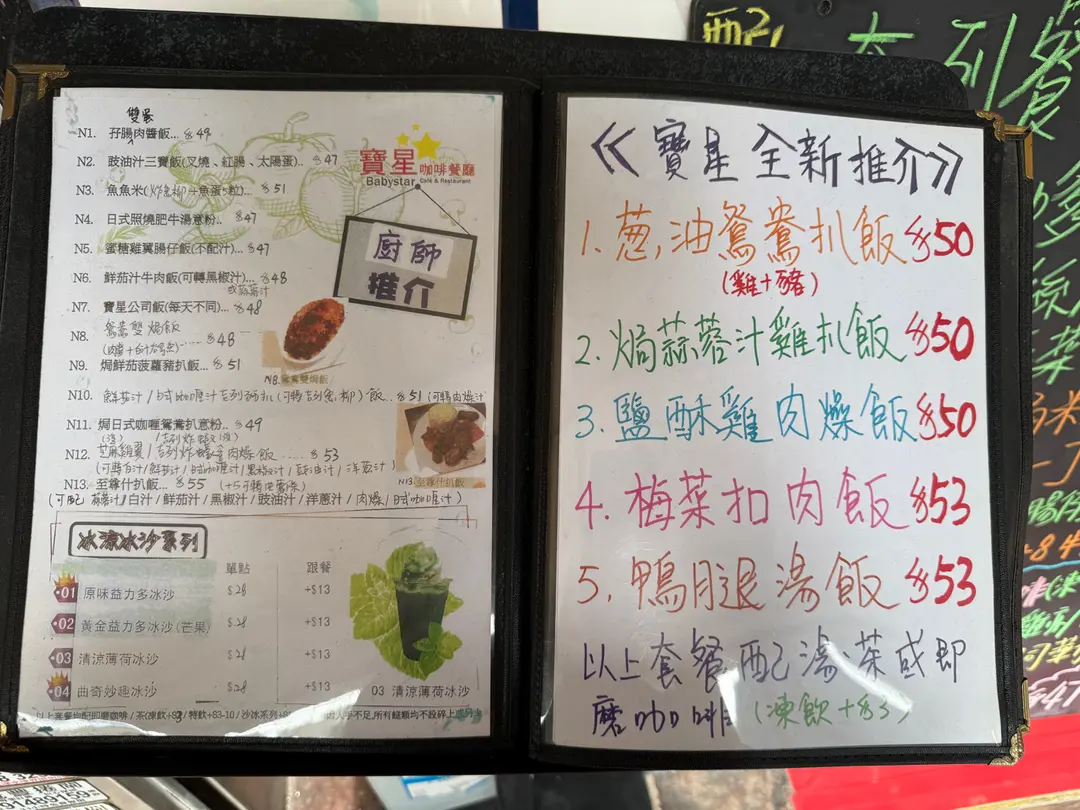 雙蛋
N1. 孖腸肉醬飯... $49
N2. 豉油汁三寶飯(叉燒、紅腸、太陽蛋).. $47
N3. 魚魚米(炸魚柳+魚蛋5粒)... $51
N4. 日式照燒肥牛湯意粉.. $47
N5. 蜜糖雞翼腸仔飯(不配汁)... $47
N6. 鮮茄汁牛肉飯(可轉黑椒汁)... $48
或蒜茸汁
N7. 寶星公司飯(每天不同)... $48
N8. 鴛鴦雙焗飯
$48
N9. 焗鮮茄菠蘿豬扒飯... $51
N10. 鮮茄汁/日式咖喱汁吉列豬扒(可轉吉列魚柳)飯.. $51 (可轉肉燥汁
N11. 焗日式咖喱鴛鴦扒意粉.. $49
N12. $53
(可轉白汁/鮮茄汁/日式咖喱汁/黑椒汁/豉油汁/洋蔥汁)
N13. 至尊什扒飯... $55
(可配 蒜茸汁/白汁/鮮茄汁/黑椒汁/豉油汁/洋蔥汁/肉燥/日式咖喱汁)
寶星咖啡餐廳
Babystar Café & Restaurant
廚師
推介
N8. 鴛鴦雙焗飯
N13 至尊什扒飯
冰涼冰沙系列
單點 跟餐
01 原味益力多冰沙 $28 +$13
02 黃金益力多冰沙(芒果) $28 +$13
03 清涼薄荷冰沙 +$13
04 曲奇妙趣冰沙 $28 +$13
03 清涼薄荷冰沙
《寶星全新推介》
1. 蔥油鴛鴦扒飯 $50
(雞+豬)
2. 焗蒜蓉汁雞扒飯 $50
3. 鹽酥雞肉燥飯 $50
4. 梅菜扣肉飯 $53
5. 鴨腿湯飯 $53
以上套餐配湯.茶或即
磨咖啡 (凍飲+$3)